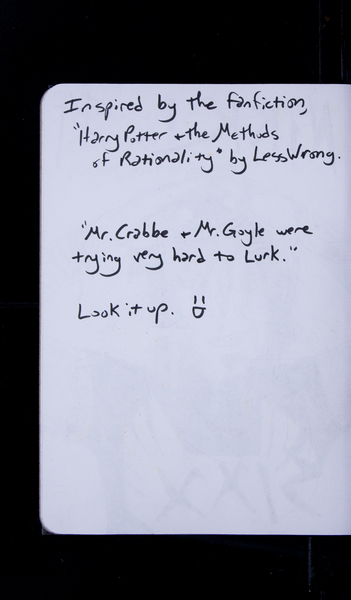 Inspired by the fanfiction,
"Harry Potter + the Methods
of Rationality" by LessWrong.
"Mr. Crabbe + Mr. Goyle were
trying very hard to Lurk."
Look it up. :D